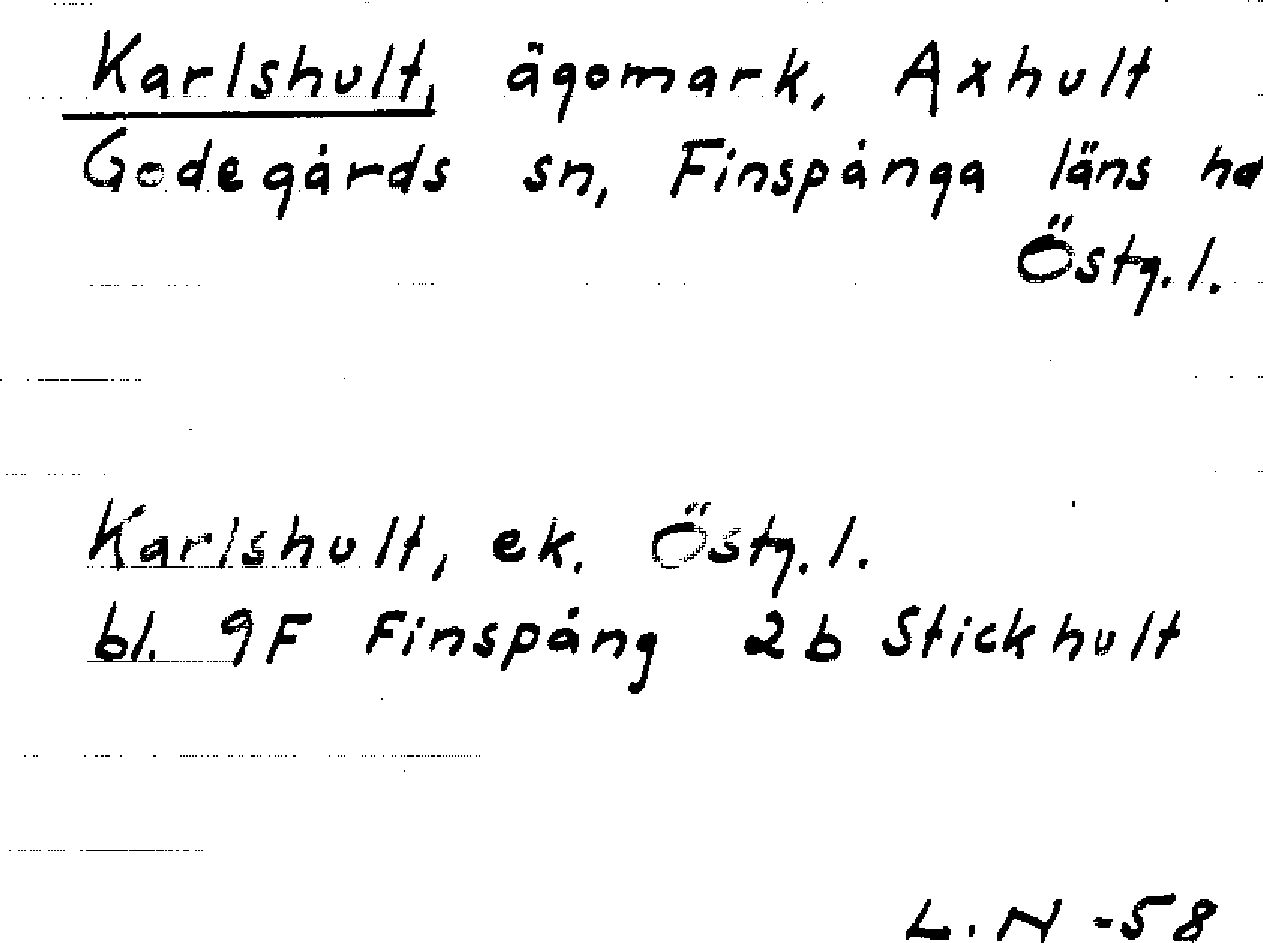 Karlshult, ägomark, Axhult
Godegårds sn, Finspånga läns hd
Östg. l.
Karlshult, ek. Östg. l.
bl. 9F Finspång 2b Stickhult
L. N -58